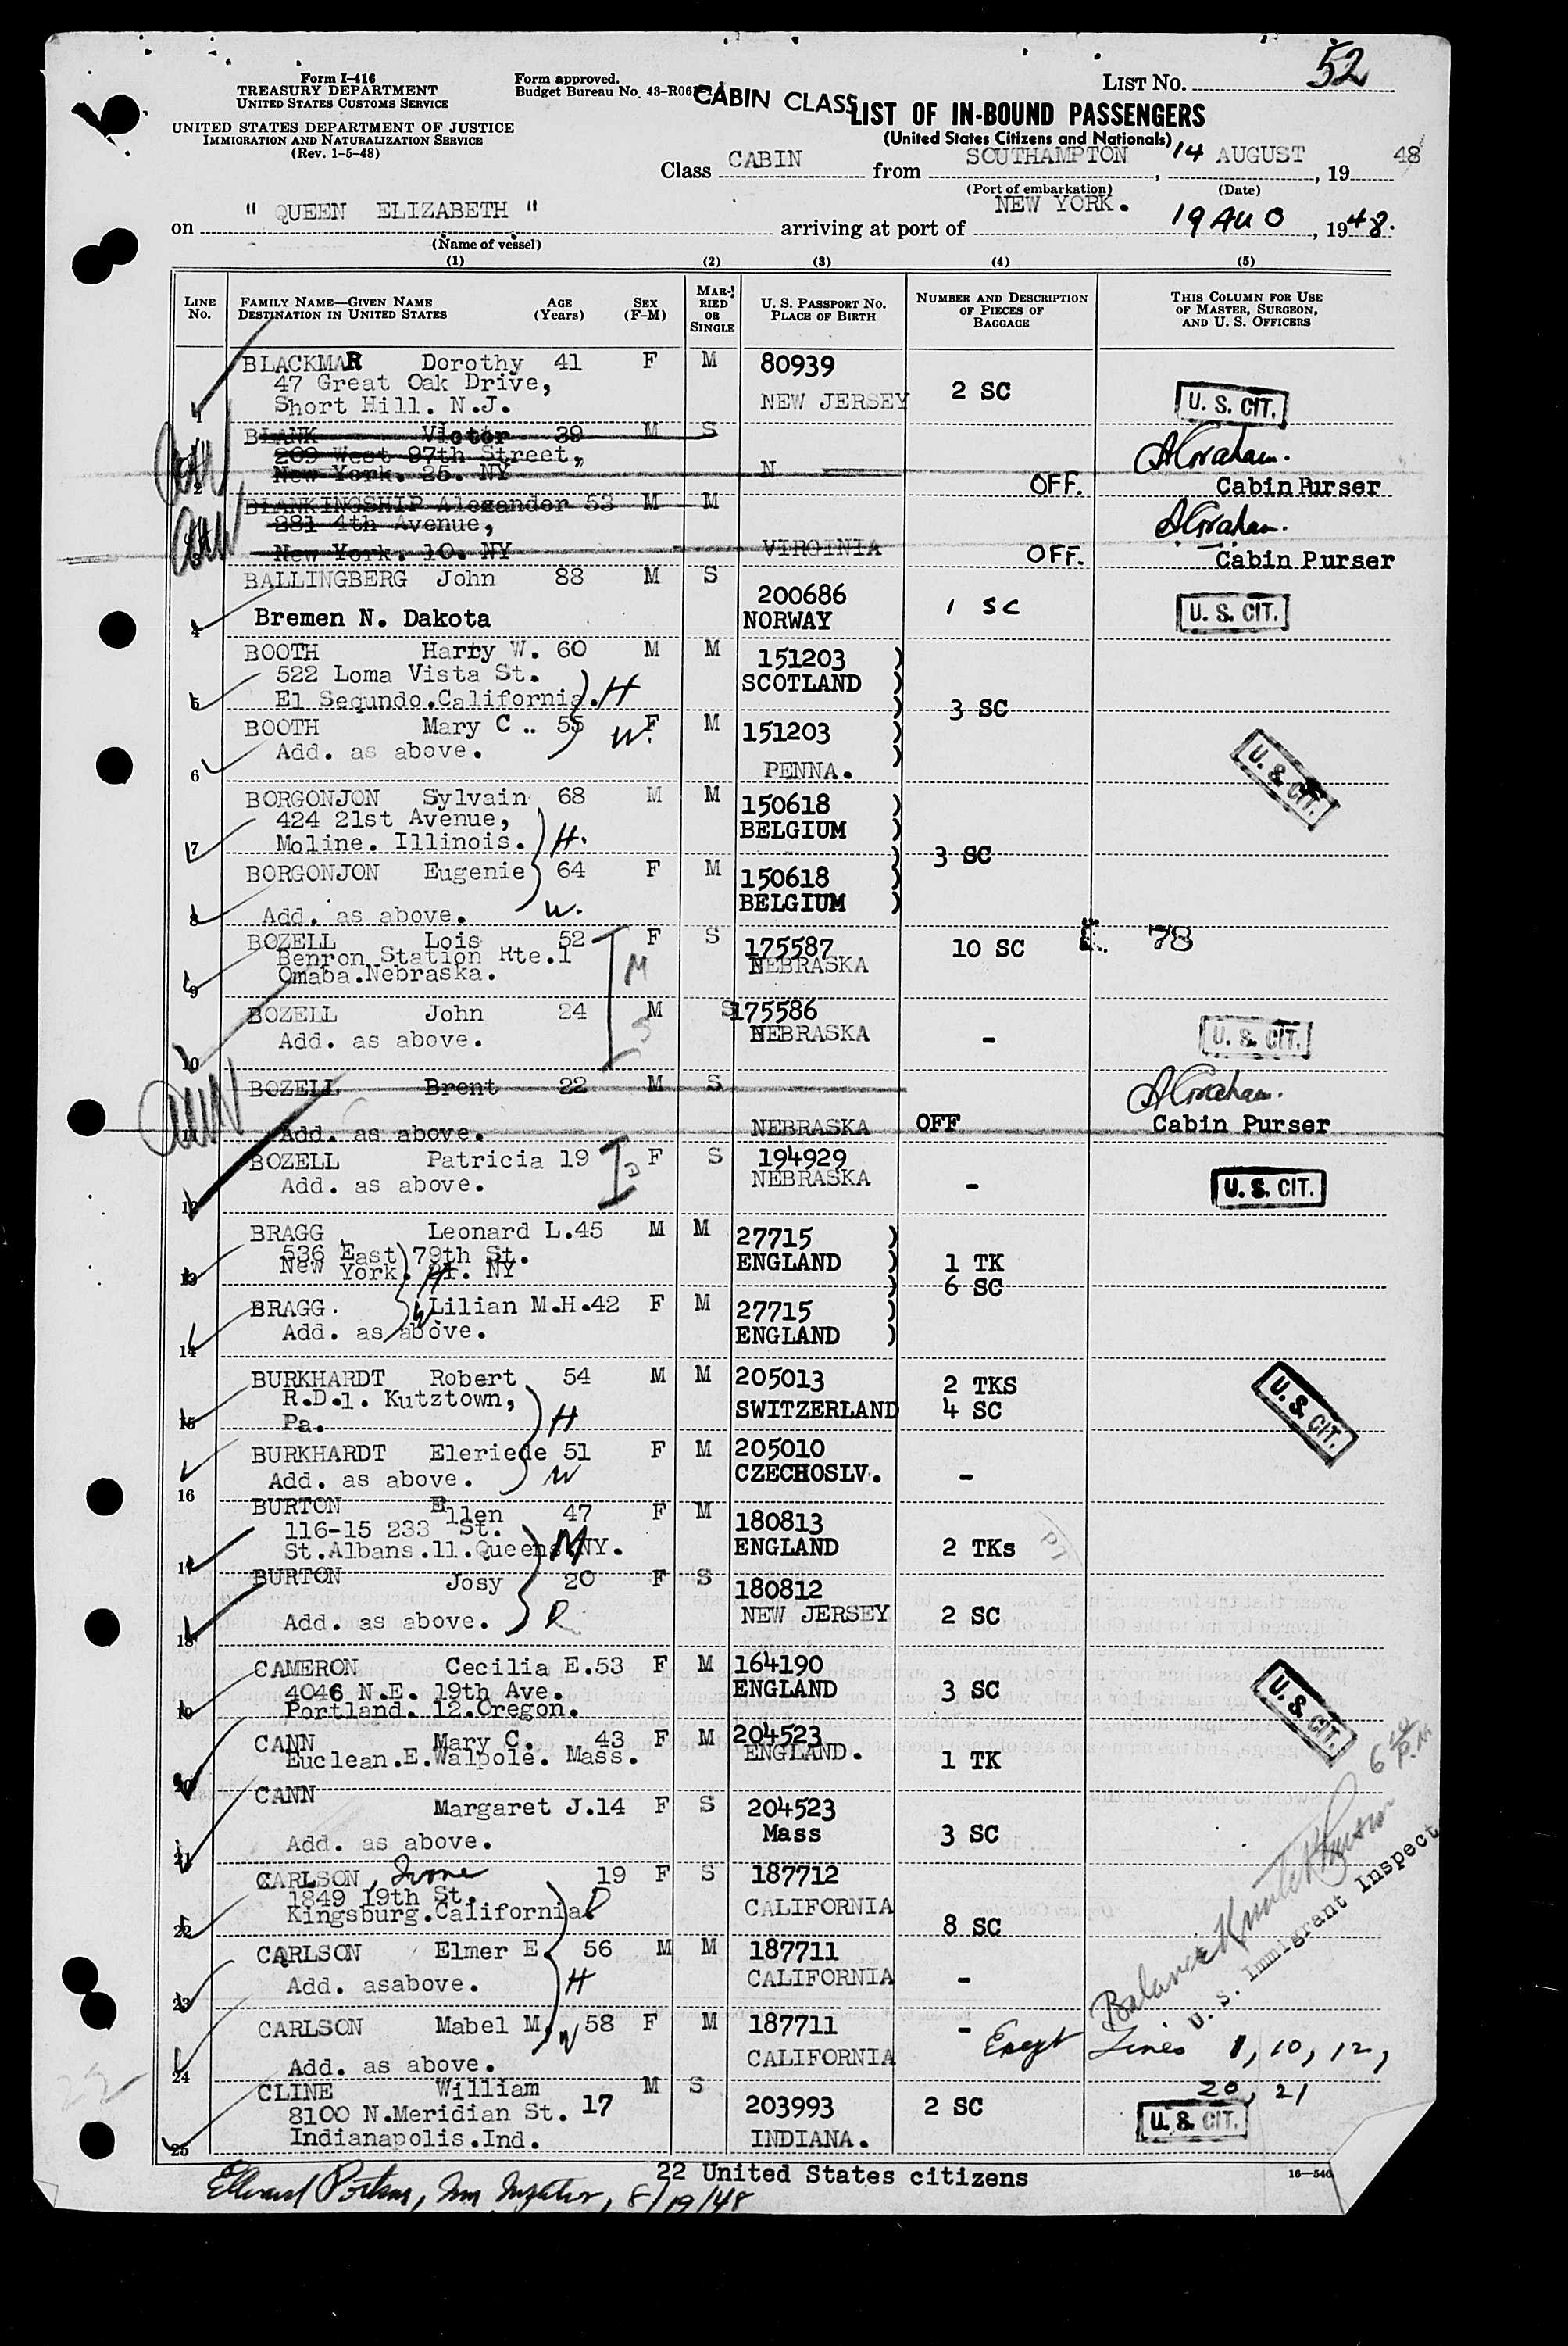 52
Form I-416
TREASURY DEPARTMENT
UNITED STATES CUSTOMS SERVICE
UNITED STATES DEPARTMENT OF JUSTICE
IMMIGRATION AND NATURALIZATION SERVICE
(Rev. 1-5-48)
Form approved.
Budget Bureau No. 43-R06
CABIN CLASS
LIST NO.
LIST OF IN-BOUND PASSENGERS
(United States Citizens and Nationals)
Class CABIN from SOUTHAMPTON, 14 AUGUST, 19 48
(Port of embarkation) (Date)
on " QUEEN ELIZABETH " arriving at port of NEW YORK. 19 AUG, 1948.
(Name of vessel)
(1) (2) (3) (4) (5)
LINE NO. FAMILY NAME—GIVEN NAME DESTINATION IN UNITED STATES AGE (Years) SEX (F-M) MARRIED OR SINGLE U. S. PASSPORT NO. PLACE OF BIRTH NUMBER AND DESCRIPTION OF PIECES OF BAGGAGE THIS COLUMN FOR USE OF MASTER, SURGEON, AND U. S. OFFICERS
BLACKMAR Dorothy 41 F M 80939
47 Great Oak Drive, 2 SC
Short Hill. N.J. NEW JERSEY U. S. CIT.
1
BLANK Victor 39 M S
209 West 97th Street,
New York. 25. NY N
2 OFF. Cabin Purser
BLANKINGSHIP Alexander 53 M M
281 4th Avenue,
New York. 10. NY VIRGINIA
3 OFF. Cabin Purser
BALLINGBERG John 88 M S
200686 1 SC U. S. CIT.
4 Bremen N. Dakota NORWAY
BOOTH Harry W. 60 M M 151203
522 Loma Vista St. SCOTLAND
5 El Segundo.California. H 3 SC
BOOTH Mary C .. 55 F M 151203
W.
Add. as above.
6 PENNA. U. S. CIT.
BORGONJON Sylvain 68 M M 150618
424 21st Avenue, BELGIUM
7 Moline. Illinois. H. 3 SC
BORGONJON Eugenie 64 F M 150618
8 Add. as above. W. BELGIUM
BOZELL Lois 52 F S 175587 10 SC 78
Benron Station Rte.1 NEBRASKA
9 Omaba.Nebraska. M
BOZELL John 24 M S 175586
Add. as above. S NEBRASKA - U. S. CIT.
10
BOZELL Brent 22 M S
11 Add. as above. NEBRASKA OFF Cabin Purser
BOZELL Patricia 19 D F S 194929
Add. as above. NEBRASKA - U. S. CIT.
12
BRAGG Leonard L.45 M M 27715
536 East 79th St. ENGLAND 1 TK
New York. 21. NY H 6 SC
13
BRAGG. Lilian M.H.42 F M 27715
W
Add. as above. ENGLAND
14
BURKHARDT Robert 54 M M 205013 2 TKS
R.D.1. Kutztown, SWITZERLAND 4 SC U. S. CIT.
15 Pa. H
BURKHARDT Eleriede 51 F M 205010
Add. as above. W CZECHOSLV. -
16
BURTON Ellen 47 F M 180813
116-15 233 St. ENGLAND 2 TKs
17 St.Albans.11.Queens.NY. M
BURTON Josy 20 F S 180812
18 Add. as above. D NEW JERSEY 2 SC
CAMERON Cecilia E.53 F M 164190
4046 N.E. 19th Ave. ENGLAND 3 SC
19 Portland. 12.Oregon. U. S. CIT.
CANN Mary C. 43 F M 204523
Euclean.E.Walpole. Mass. ENGLAND. 1 TK
20
CANN
Margaret J.14 F S 204523
21 Add. as above. Mass 3 SC
CARLSON, Ivone 19 F S 187712
1849 19th St.
22 Kingsburg.California. D CALIFORNIA 8 SC
CARLSON Elmer E. 56 M M 187711
23 Add. asabove. H CALIFORNIA -
CARLSON Mabel M. W 58 F M 187711 -
24 Add. as above. CALIFORNIA
Balance
U. S. Immigrant Inspect
Except Lines 1, 10, 12,
20, 21
CLINE William M S
8100 N.Meridian St. 17 203993 2 SC U. S. CIT.
25 Indianapolis.Ind. INDIANA.
22 United States citizens
16—546
8/19/48